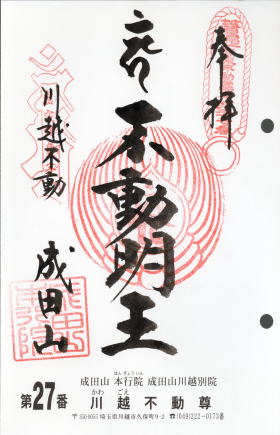 奉拝
不動明王
川越不動
成田山
ほんぎょういん
成田山 本行院 成田山川越別院
かわ ごえ
第27番 川越不動尊
〒350-0055 埼玉県川越市久保町9-2 ☎(049)222-0173番